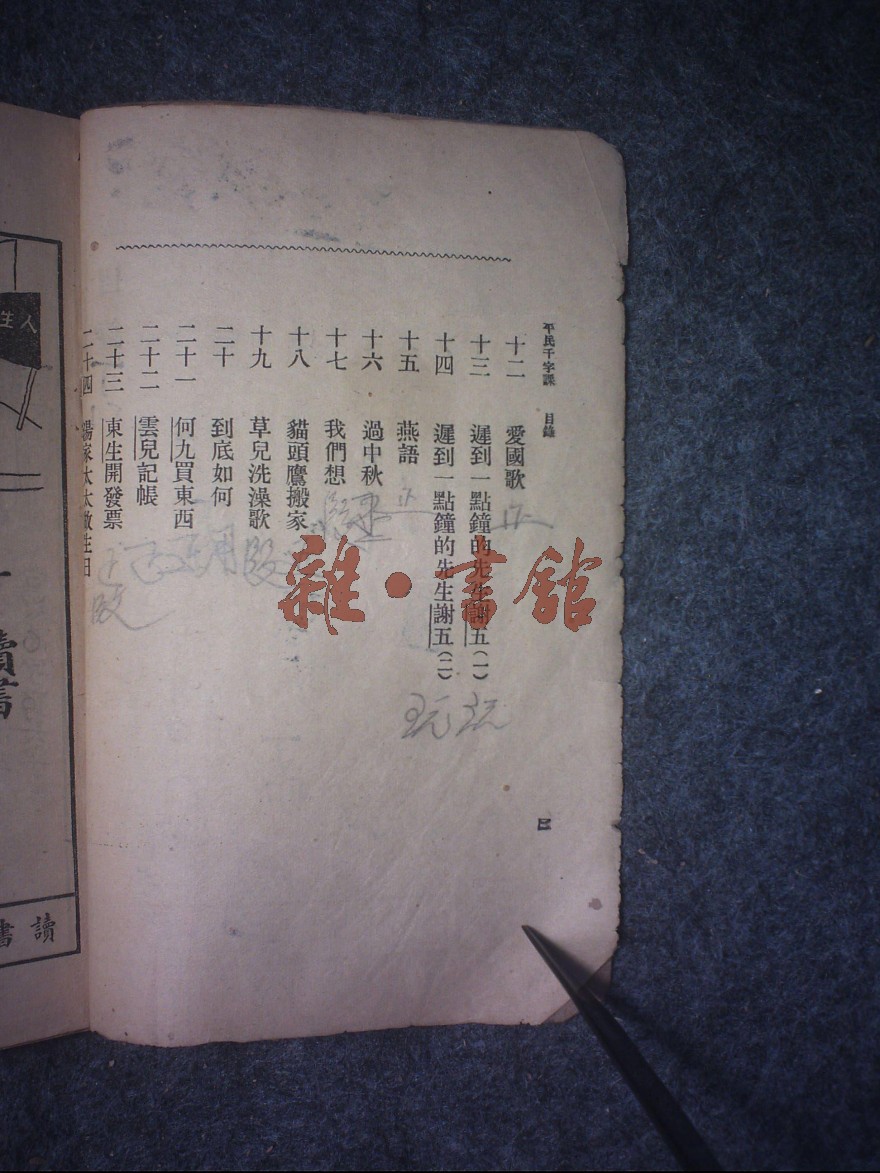 平民千字課 目錄
十二 愛國歌
十三 遲到一點鐘的先生謝五(一)
十四 遲到一點鐘的先生謝五(二)
十五 燕語
十六 過中秋
十七 我們想
十八 貓頭鷹搬家
十九 草兒洗澡歌
二十 到底如何
二十一 何九買東西
二十二 雲兒記帳
二十三 東生開發票
二十四 湯家太太做生日
雜·書館
人生
讀書
讀書